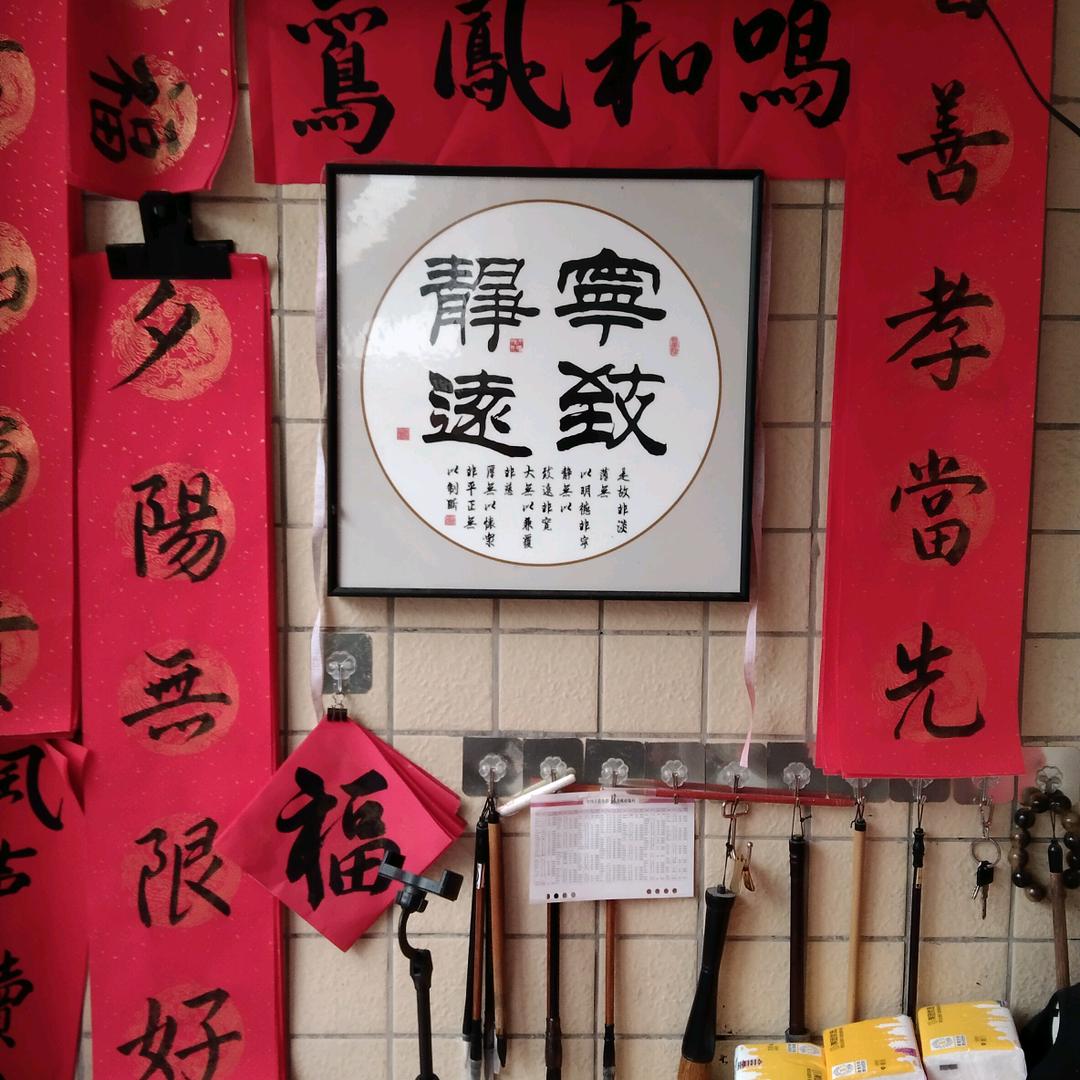 鸞鳳和鳴
福
善孝當先
寧靜
致遠
是故非淡
薄無
以明德非寧
靜無以
致遠非寬
大無以兼覆
非慈
厚無以懷衆
非平正無
以制斷
夕陽無限好
福